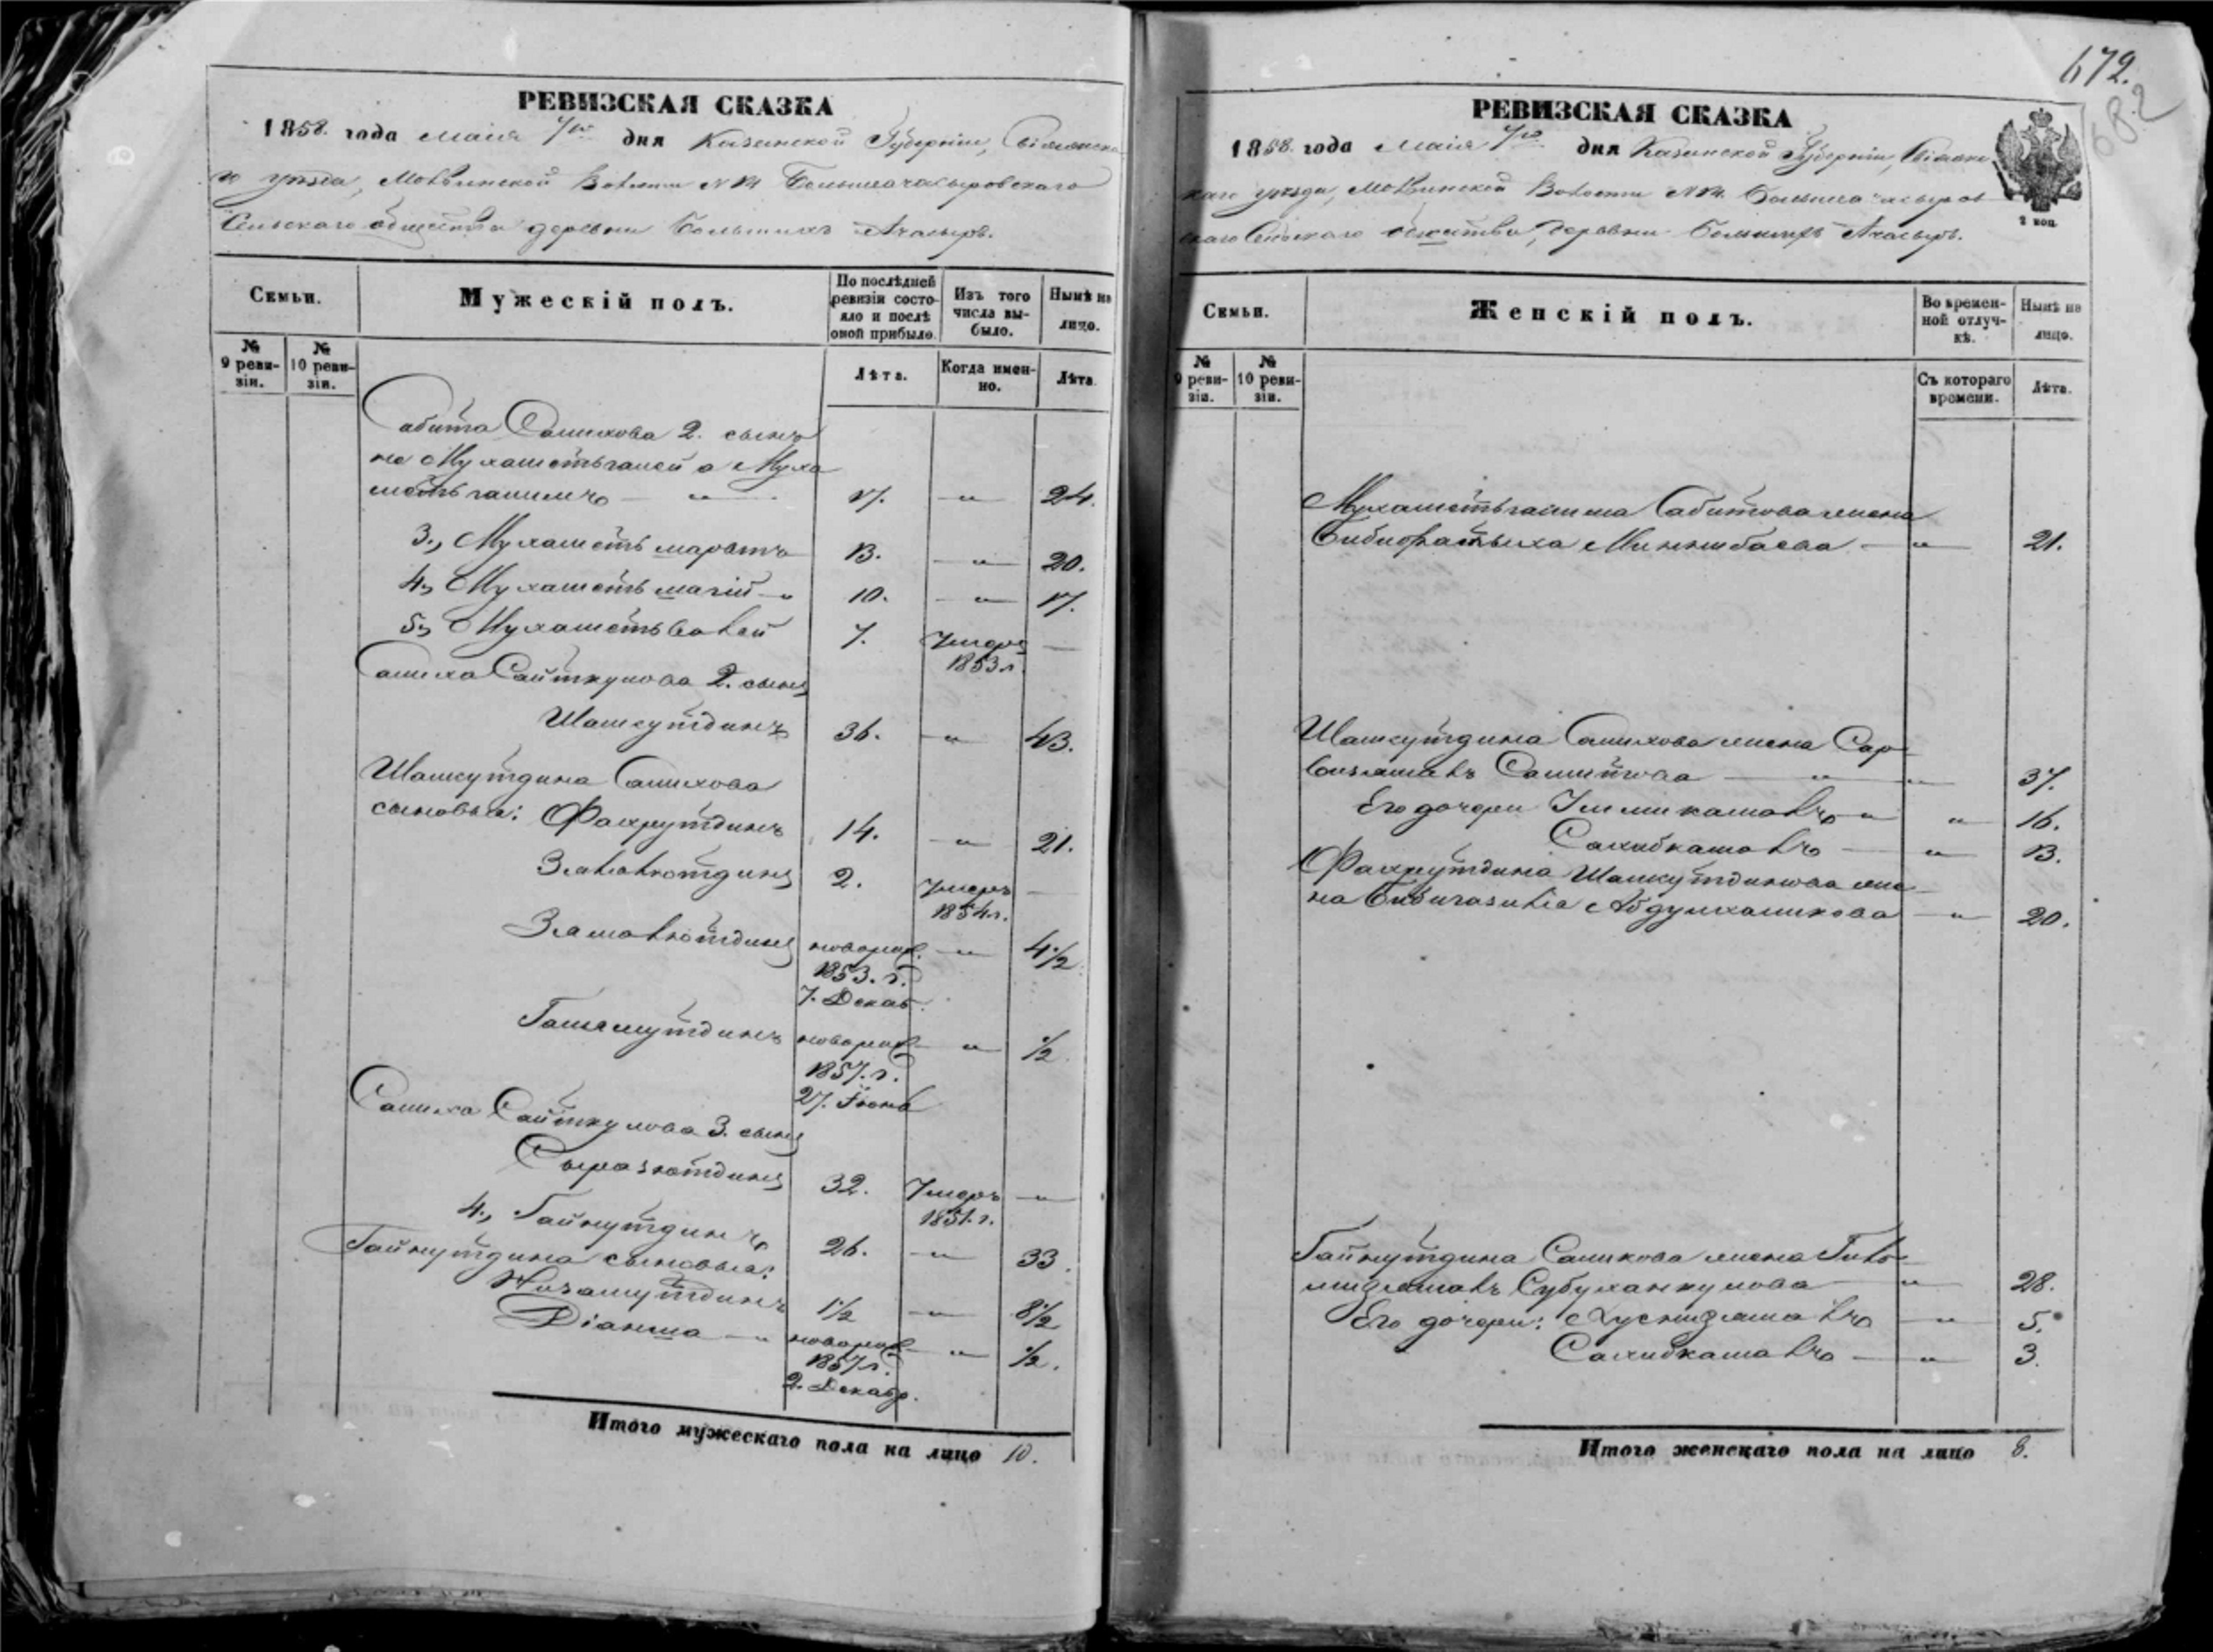 РЕВИЗСКАЯ СКАЗКА
1858. года маія 7го дня Казанской Губерніи, Свіяжска
го уѣзда, Молвинской Волости № Большеачасыровскаго
Сельскаго общества деревни Большихъ Ачасыръ.
Семьи.
Мужескій полъ.
По послѣдней ревизіи состояло и послѣ оной прибыло.
Изъ того числа выбыло.
Нынѣ на лицо.
№ 9 ревизіи.
№ 10 ревизіи.
Лѣта.
Когда именно.
Лѣта.
Сабита Салихова 2. сынъ
не Мухаметьгалей а Муха
метьгалимъ — " — 17. — " — 24.
3., Мухаметь 13. — " — 20.
4., Мухаметь — " 10. — " — 17.
5., Мухаметьвалей 7. Умеръ —
1853 г.
Салиха Сайткулова 2. сынъ
Шамсутдинъ 36. — " — 43.
Шамсутдина Салихова
сыновья: Фахрутдинъ 14. — " — 21.
Залялютдинъ 2. Умеръ —
1854 г.
Замалютдинъ новорож. — " — 4 1/2
1853. г.
7. Декаб.
Гимамутдинъ новорож. — " — 1/2.
1857. г.
27. Іюня
Салиха Сайткулова 3. сынъ
Сыразютдинъ 32. Умеръ — " —
1851. г.
4., Гайнутдинъ 26. — " — 33.
Гайнутдина сыновья:
Низамутдинъ 1 1/2 — " — 8 1/2
Діанша — " новорож. — " — 1/2.
1857 г.
2. Декабр.
Итого мужескаго пола на лицо 10.
672.
682
РЕВИЗСКАЯ СКАЗКА
1858. года маія 7го дня Казанской Губерніи, Свіяжс
каго уѣзда, Молвинской Волости № Большеачасыров
скаго Сельскаго общества, деревни Большихъ Ачасыръ.
2 коп.
Семьи.
Женскій полъ.
Во временной отлучкѣ.
Нынѣ на лицо.
№ 9 ревизіи.
№ 10 ревизіи.
Съ котораго времени.
Лѣта.
Мухаметьгалима Сабитова жена
Бибифатыха Миннибаева — " — 21.
Шамсутдина Салихова жена Сар
визямалъ Салитова — " — " — 37.
Его дочери Уммикамалъ — " " — 16.
Сахибкамалъ — " — 13.
Фахрутдина Шамсутдинова же
на Бибигазиля Абдулхаликова — " — 20.
Гайнутдина Салихова жена Гиль
мизямалъ Субуханкулова — " — 28.
Его дочери: Хуснизямалъ — " — 5.
Сахибкамалъ — " — 3.
Итого женскаго пола на лицо 8.